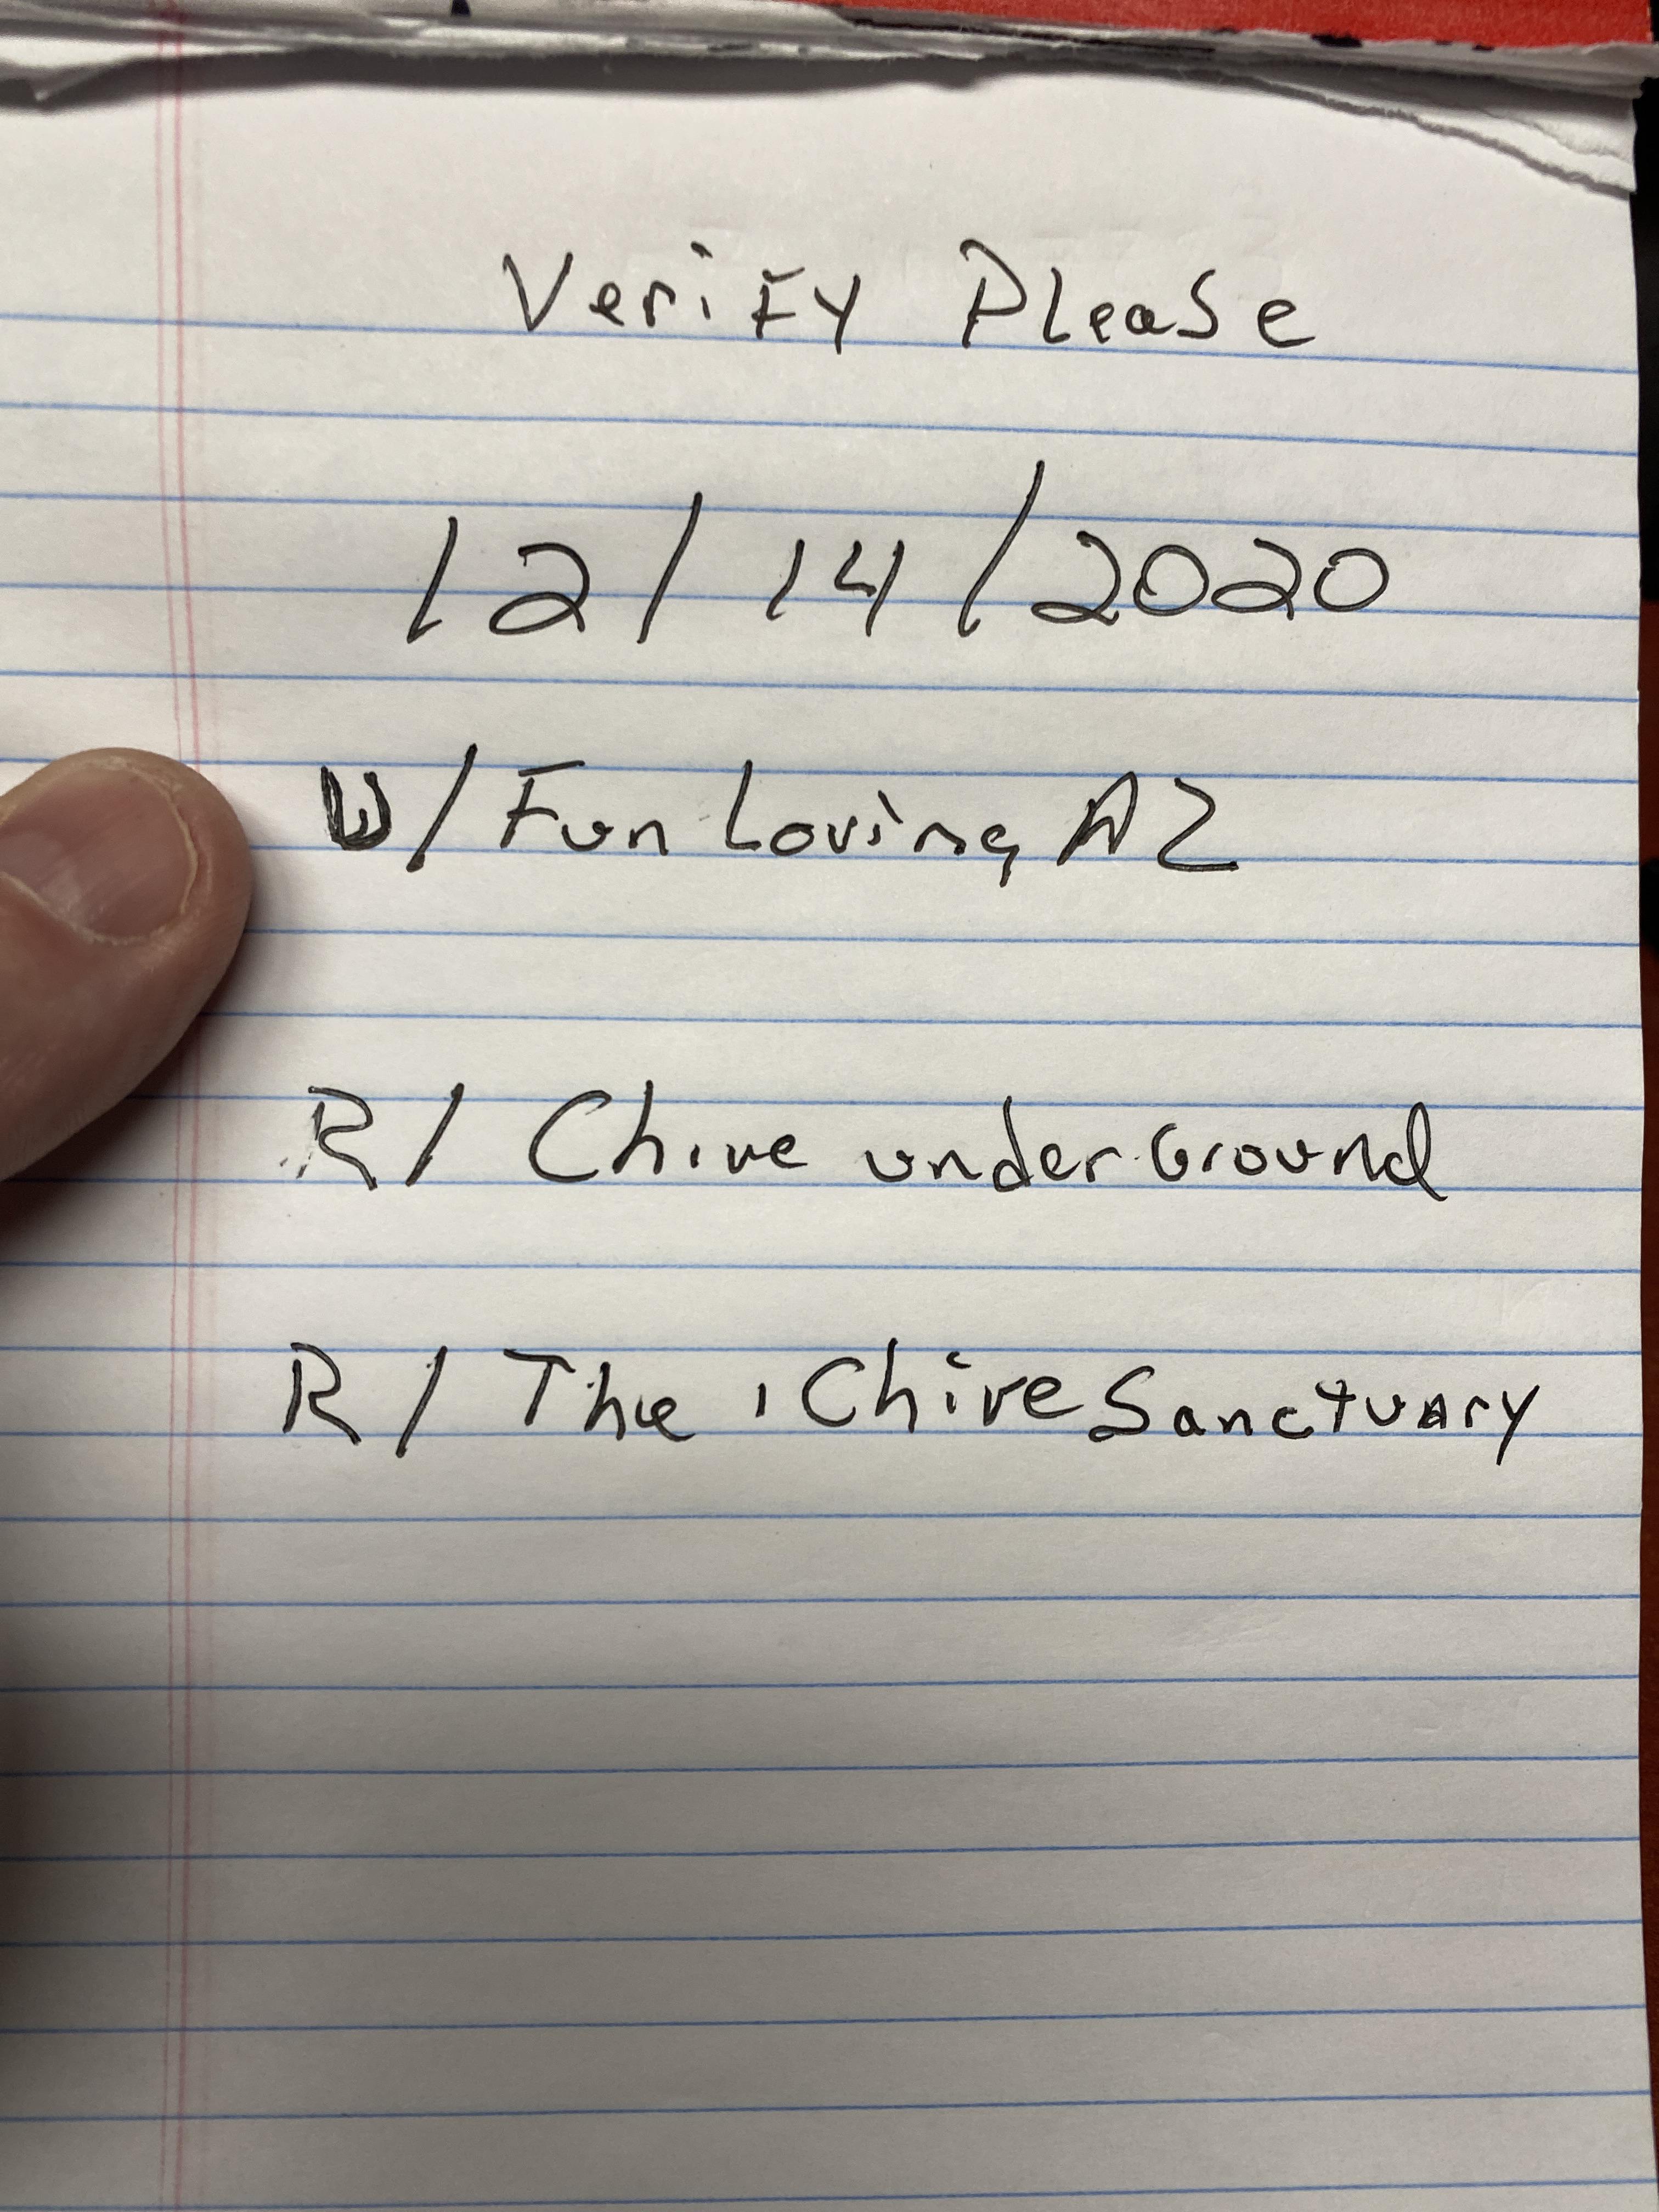 Verify Please
12/14/2020
U/ Fun Loving AZ
R/ Chive underGround
R/ The Chive Sanctuary